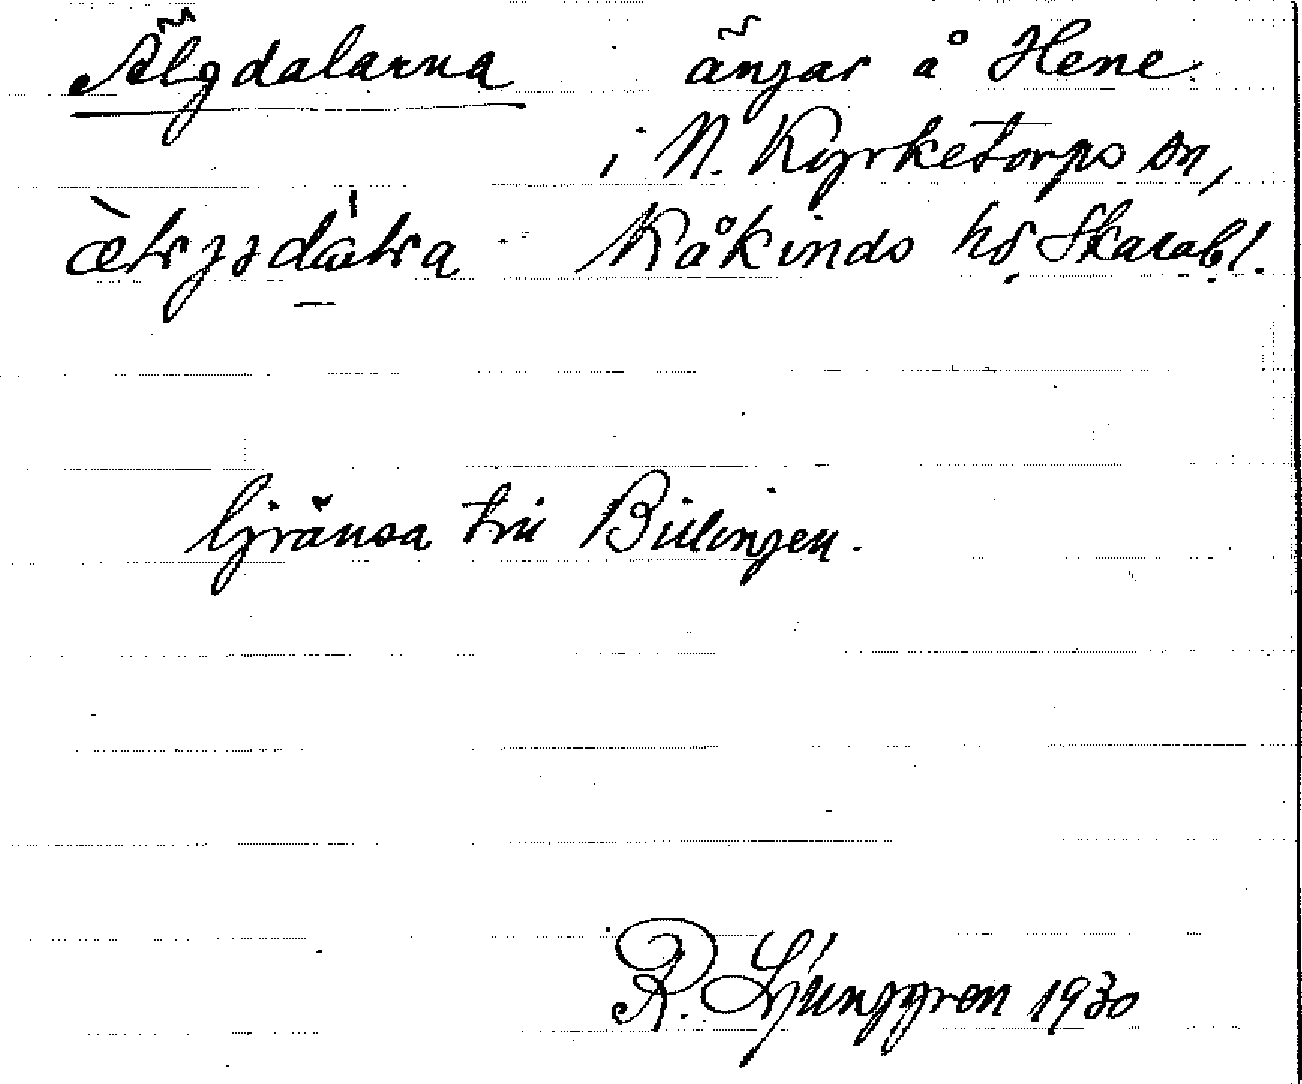 Älgdalarna ängar å Hene
i N. Kyrketorps sn,
Kåkinds hd Skarab.l.
Gränsa till Billingen.
R. Ljunggren 1930